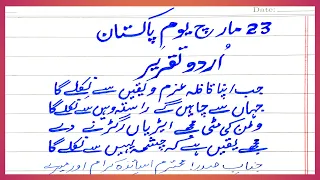 Date:
23 مارچ یوم پاکستان
اُردو تقریر
جب اپنا قافلہ عزم و یقیں سے نکلے گا
جہاں سے چاہیں گے راستہ وہیں سے نکلے گا
وطن کی مٹی مجھے ایڑیاں رگڑنے دے
مجھے یقیں ہے کہ چشمہ یہیں سے نکلے گا
جناب صدر! محترم اساتذہ کرام اور میرے